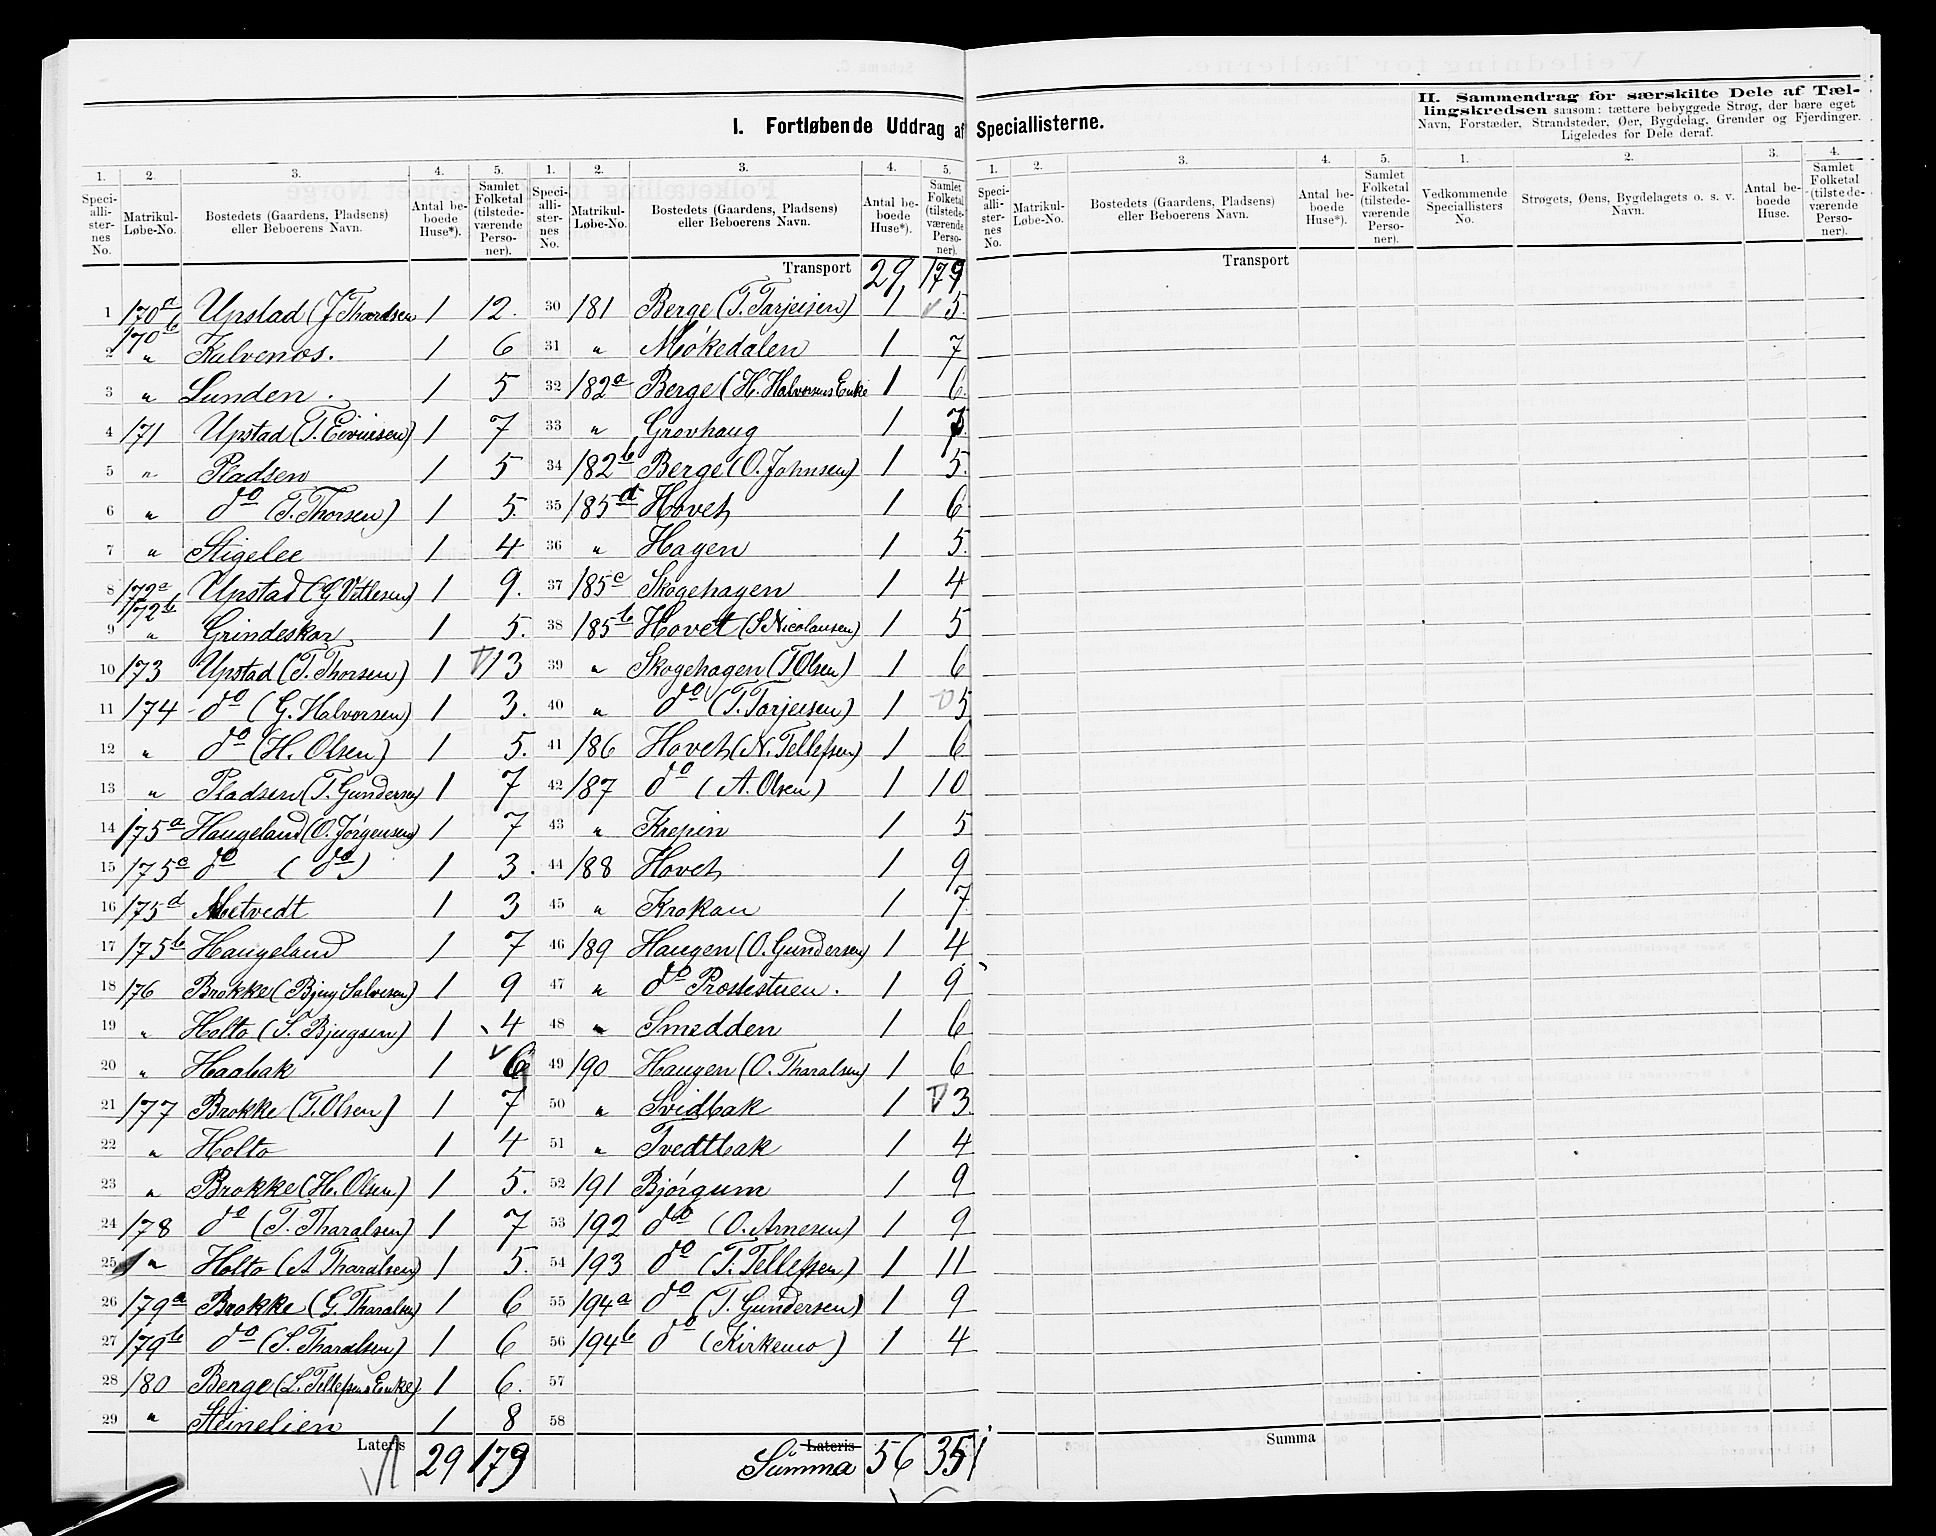 I. Fortløbende Uddrag af Speciallisterne.
II. Sammendrag for særskilte Dele af Tæl-
lingskredsen saasom: tættere bebyggede Strøg, der bære eget
Navn, Forstæder, Strandsteder, Øer, Bygdelag, Grender og Fjerdinger.
Ligeledes for Dele deraf.
1. 2. 3. 4. 5.
Speci-alli-ster-nes No. Matrikul-Løbe-No. Bostedets (Gaardens, Pladsens) eller Beboerens Navn. Antal be-boede Huse*). Samlet Folketal (tilstede-værende Perso-ner).
1 170a Upstad (J Tharalsen 1 12.
2 170b " Kalvenos. 1 6
3 " Lunden. 1 5
4 171 Upstad (T. Eivinsen) 1 7
5 " Pladsen 1 5
6 " do (T. Thorsen) 1 5
7 " Stigelee 1 4
8 172a Upstad (G Vitlesen) 1 9.
9 172b " Grindeskar 1 5.
10 173 Upstad (T. Thorsen) 1 13
11 174 do (G. Halvorsen) 1 3.
12 " do (H. Olsen) 1 5.
13 " Pladsen (T. Gundersen) 1 7
14 175a Haugeland (O. Jörgensen) 1 7
15 175c do (do) 1 3.
16 175d Metvedt 1 3
17 175b Haugeland 1 7
18 176 Brokke (Bjug Salvesen) 1 9
19 " Holto (S. Bjugsen) 1 4
20 " Haabak 1 6
21 177 Brokke (T. Olsen) 1 7
22 " Holto 1 4
23 " Brokke (H. Olsen) 1 5.
24 178 do (T. Tharalsen) 1 7
25 " Holto (A. Tharalsen) 1 5.
26 179a Brokke (G. Tharalsen) 1 6
27 179b do (S. Tharalsen) 1 6
28 180 Berge (L. Tellefsens Enke) 1 6.
29 " Steinelien 1 8
Lateris 29 179
1. 2. 3. 4. 5.
Speci-alli-ster-nes No. Matrikul-Løbe-No. Bostedets (Gaardens, Pladsens) eller Beboerens Navn. Antal be-boede Huse*). Samlet Folketal (tilstede-værende Perso-ner).
Transport 29, 179
30 181 Berge (T. Tarjeisen) 1 5.
31 " Mökedalen 1 7
32 182a Berge (H. Halvorsens Enke 1 6.
33 " Grovhaug 1 7.
34 182b Berge (O. Johnsen) 1 5.
35 185d Hovet 1 6
36 " Hagen 1 5.
37 185c Skogehagen 1 4
38 185b Hovet (S Nicolausen) 1 5
39 " Skogehagen (T Olsen) 1 6
40 " do (T. Tarjeisen) 1 5
41 186 Hovet (N. Tellefsen) 1 6
42 187 do (A. Olsen) 1 10
43 " Krepin 1 5
44 188 Hovet 1 9
45 " Krokan 1 7.
46 189 Haugen (O. Gundersen) 1 4
47 " do Prostestuen. 1 9
48 " Smedden 1 6
49 190 Haugen (O. Tharalsen) 1 6
50 " Svidbak 1 3.
51 " Tvedtbak 1 4
52 191 Björgum 1 9
53 192 do (O. Arnesen) 1 9
54 193 do (T. Tellefsen) 1 11
55 194a do (T. Gundersen) 1 9
56 194b do (Kirkemo) 1 4
57
58
Lateris
Summa 56 351
1. 2. 3. 4. 5.
Speci-alli-ster-nes No. Matrikul-Løbe-No. Bostedets (Gaardens, Pladsens) eller Beboerens Navn. Antal be-boede Huse*). Samlet Folketal (tilstede-værende Perso-ner).
Transport
Summa
1. 2. 3. 4.
Vedkommende Speciallisters No. Strøgets, Øens, Bygdelagets o. s. v. Navn. Antal be-boede Huse. Samlet Folketal (tilstede-værende Perso-ner).